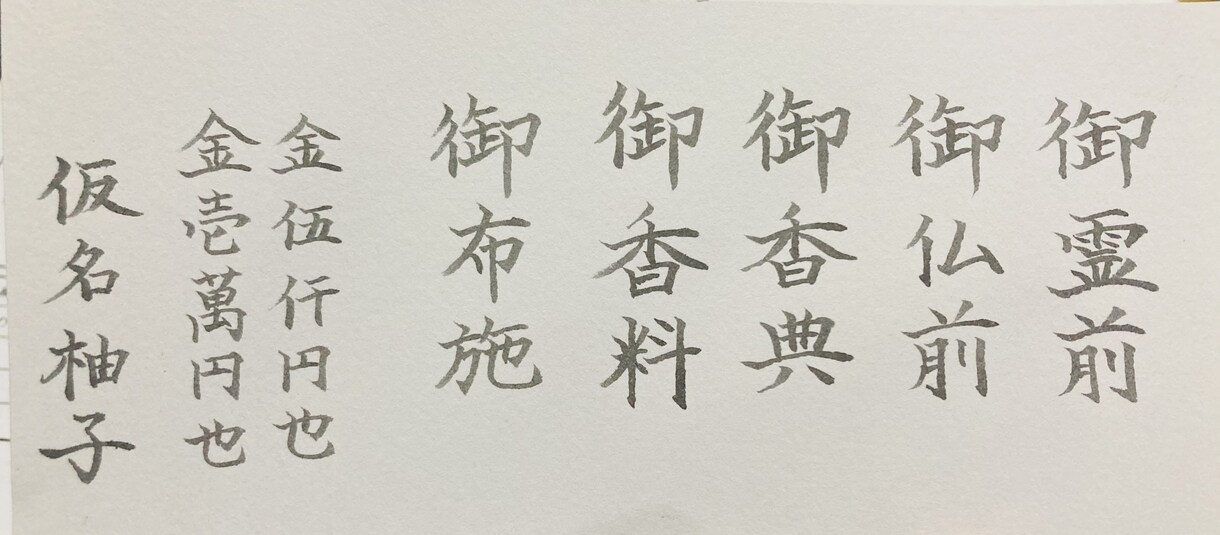 御霊前
御仏前
御香典
御香料
御布施
金伍仟円也
金壱萬円也
仮名柚子